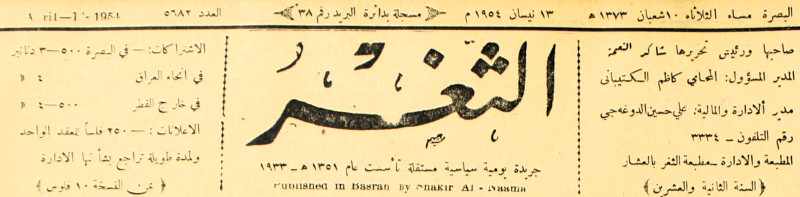 البصرة مساء الثلاثاء ١٠ شعبان ١٣٧٣ ه
١٣ نيسان ١٩٥٤ م
مسجلة بدائرة البريد رقم ٣٨
العدد ٥٦٨٢
1954
صاحبها ورئيس تحريرها شاكر النعمة
المدير المسؤول: المحامي كاظم الكتيباني
مدير ألادارة والمالية: علي حسين الدوغه جي
رقم التلفون ـ ٣٣٣٤
المطبعة والادارة ـ مطبعة الثغر بالعشار
(السنة الثانية والعشرين)
الثغر
جريدة يومية سياسية مستقلة تأسست عام ١٣٥١ ه ـ ١٩٣٣
Published in Basrah By Shakir Al - Naama
الاشتراكات: — في البصرة ٥٠٠—٣ دنانير
في انحاء العراق ٤ »
في خارج القطر ٥٠٠—٤ »
الاعلانات: — ٢٥٠ فلساً للعقد الواحد
ولمدة طويلة تراجع بشأنها الادارة
(ثمن النسخة ١٠ فلوس)